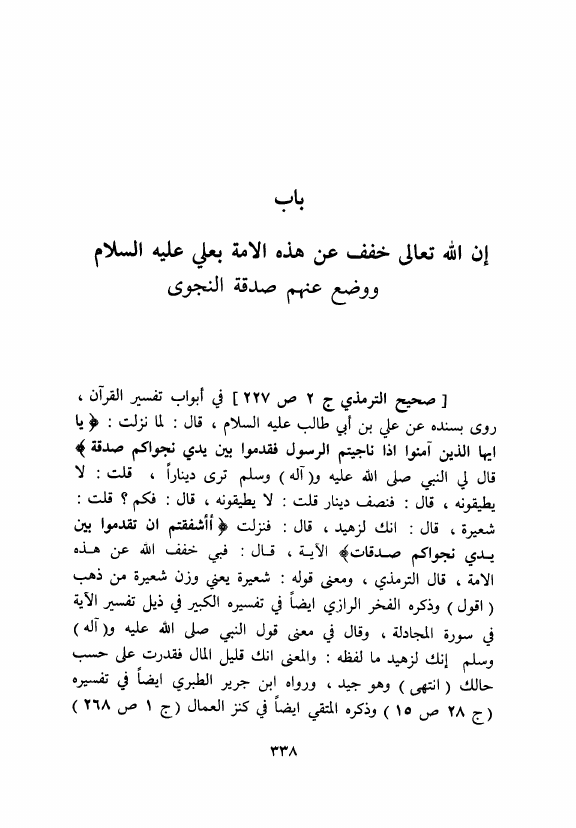 باب
إن الله تعالى خفف عن هذه الامة بعلي عليه السلام
ووضع عنهم صدقة النجوى
[ صحيح الترمذي ج ٢ ص ٢٢٧ ] في أبواب تفسير القرآن ،
روى بسنده عن علي بن أبي طالب عليه السلام ، قال : لما نزلت : ﴿ يا
ايها الذين آمنوا اذا ناجيتم الرسول فقدموا بين يدي نجواكم صدقة ﴾
قال لي النبي صلى الله عليه و(آله) وسلم ترى ديناراً ، قلت : لا
يطيقونه ، قال : فنصف دينار قلت : لا يطيقونه ، قال : فكم ؟ قلت :
شعيرة ، قال : انك لزهيد ، قال : فنزلت ﴿ أأشفقتم ان تقدموا بين
يدي نجواكم صدقات﴾ الآية ، قال : فبي خفف الله عن هذه
الامة ، قال الترمذي ، ومعنى قوله : شعيرة يعني وزن شعيرة من ذهب
( اقول ) وذكره الفخر الرازي ايضاً في تفسيره الكبير في ذيل تفسير الآية
في سورة المجادلة ، وقال في معنى قول النبي صلى الله عليه و(آله)
وسلم إنك لزهيد ما لفظه : والمعنى انك قليل المال فقدرت على حسب
حالك ( انتهى ) وهو جيد ، ورواه ابن جرير الطبري ايضاً في تفسيره
(ج ٢٨ ص ١٥ ) وذكره المتقي ايضاً في كنز العمال (ج ١ ص ٢٦٨ )
٣٣٨